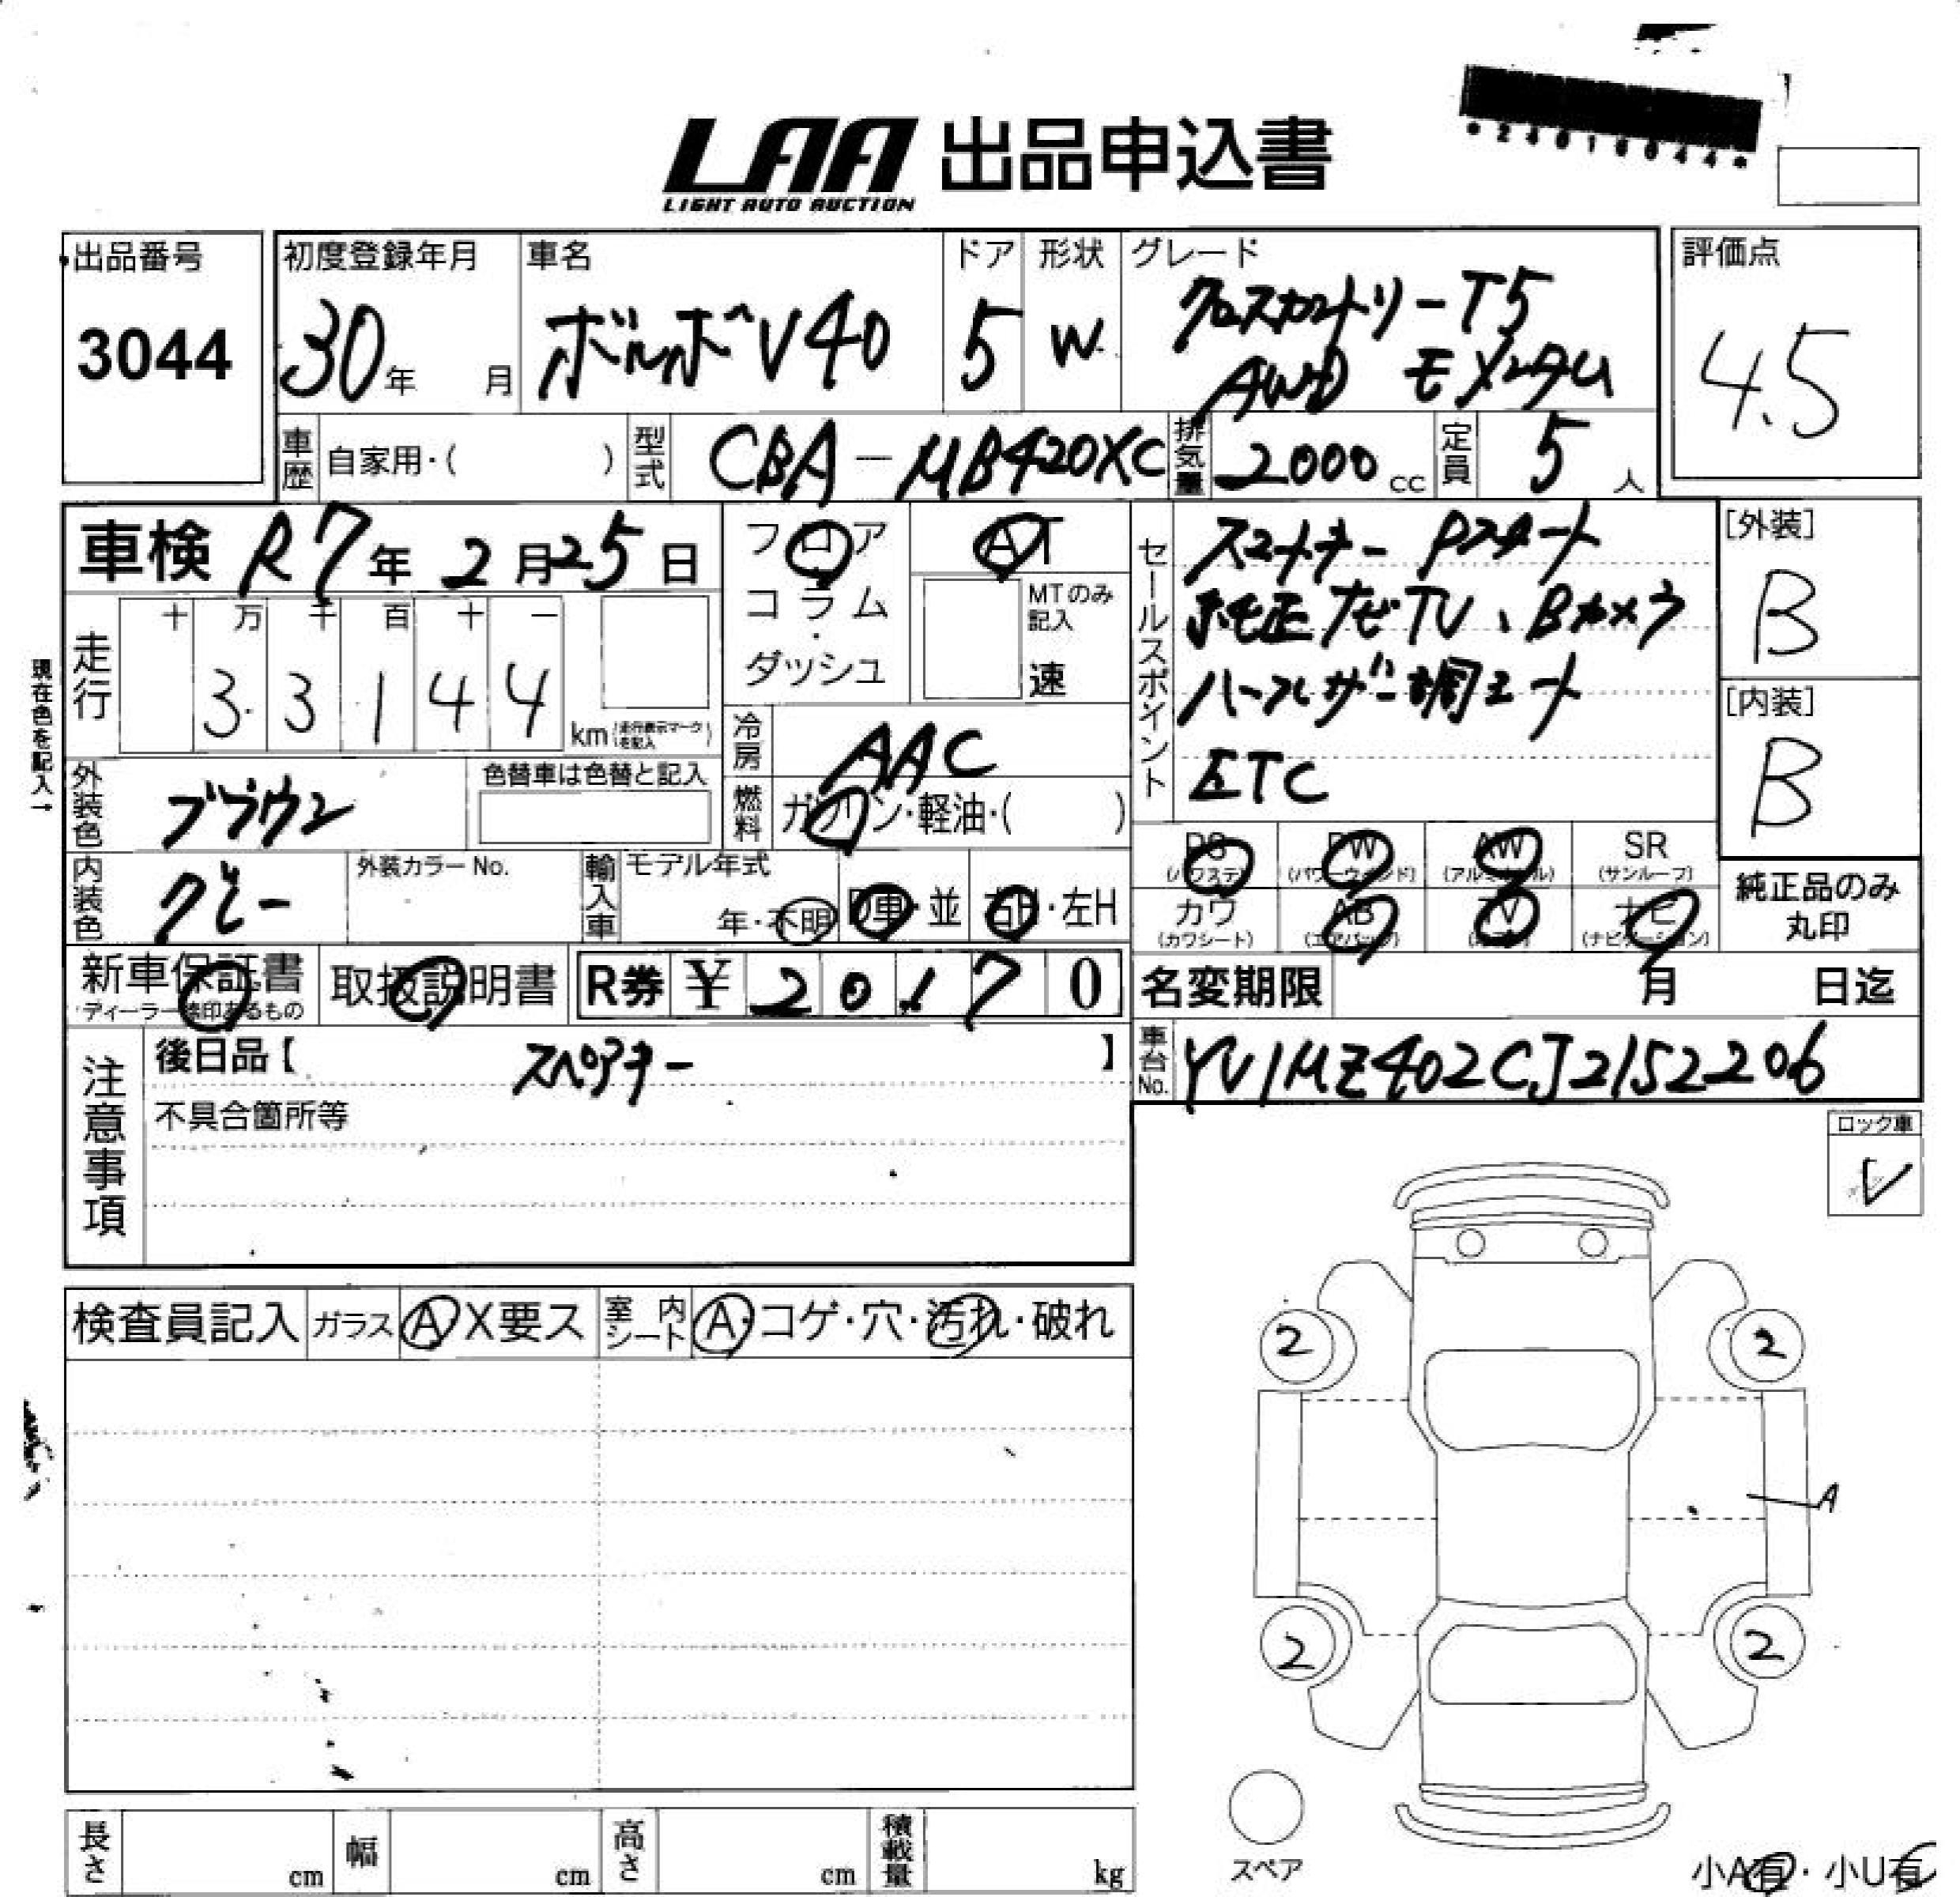 *24016044*
LAA 出品申込書
LIGHT AUTO AUCTION
出品番号
3044
初度登録年月
30年 月
車名
ボルボV40
ドア
5
形状
W
グレード
クロスカントリーT5
AWD モメンタム
評価点
4.5
車歴 自家用・( )
型式 CBA-MB420XC
排気量 2000cc
定員 5人
車検 R7年2月25日
フロア
コラム
・
ダッシュ
AT
MTのみ
記入
速
セールスポイント
スマートキー Pスタート
純正ナビTV、Bカメラ
ハーフレザー調シート
ETC
[外装]
B
[内装]
B
現在色を記入→
走行
十 万 千 百 十 一
3 3 1 4 4
km(走行表示マークを記入)
冷房 AAC
燃料 ガソリン・軽油・( )
外装色 ブラウン
色替車は色替と記入
内装色 グレー
外装カラーNo.
輸入車
モデル年式
年・不明
D車・並
右H・左H
PS
(パワステ)
PW
(パワーウィンド)
AW
(アルミホイル)
SR
(サンルーフ)
カワ
(カワシート)
AB
(エアバッグ)
TV
ナビ
(ナビゲーション)
純正品のみ
丸印
新車保証書
ディーラー捺印あるもの
取扱説明書
R券 ¥ 2 0 1 7 0
名変期限 月 日迄
注意事項
後日品【 スペアキー 】
不具合箇所等
車台No. YV1MZ402CJ2152206
ロック車
レ
検査員記入
ガラス A X要ス
室内シート A・コゲ・穴・汚れ・破れ
2
2
A
2
2
スペア
小A有・小U有
長さ cm
幅 cm
高さ cm
積載量 kg